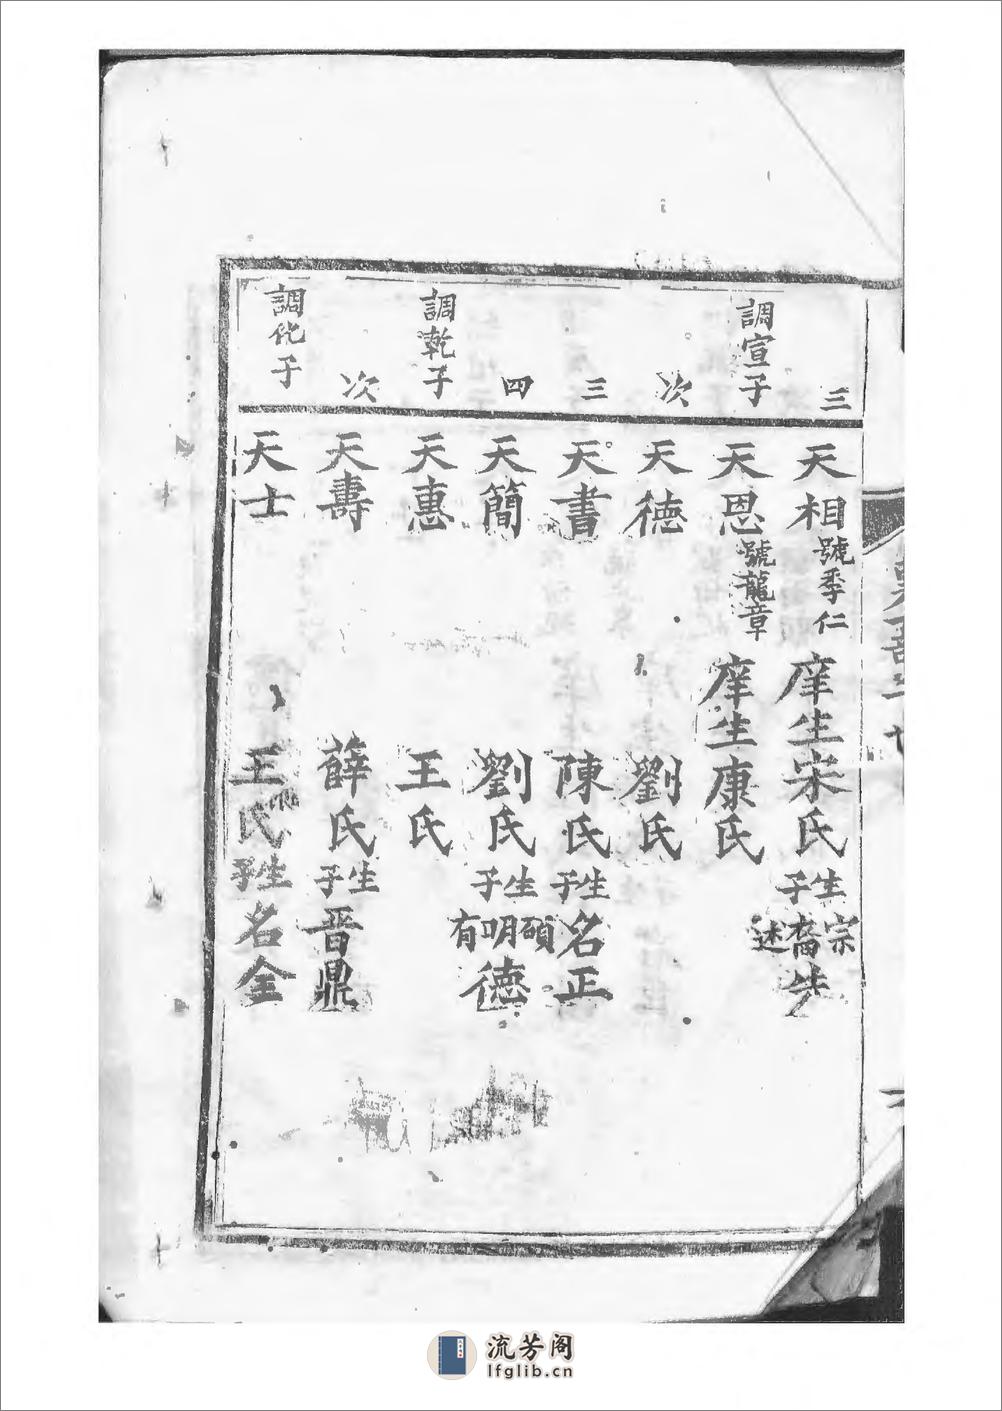 三 天相 號季仁 庠生宋氏 生子 宗裔述先
調宣子 天恩 號龍章 庠生康氏
次 天德 劉氏
三 天書 陳氏 生子 名正
四 天簡 劉氏 生子 碩明有德
調乾子 天惠 王氏
次 天壽 薛氏 生子 晋鼎
調化子 天士 王氏 生子 名全
流芳阁
lfglib.cn